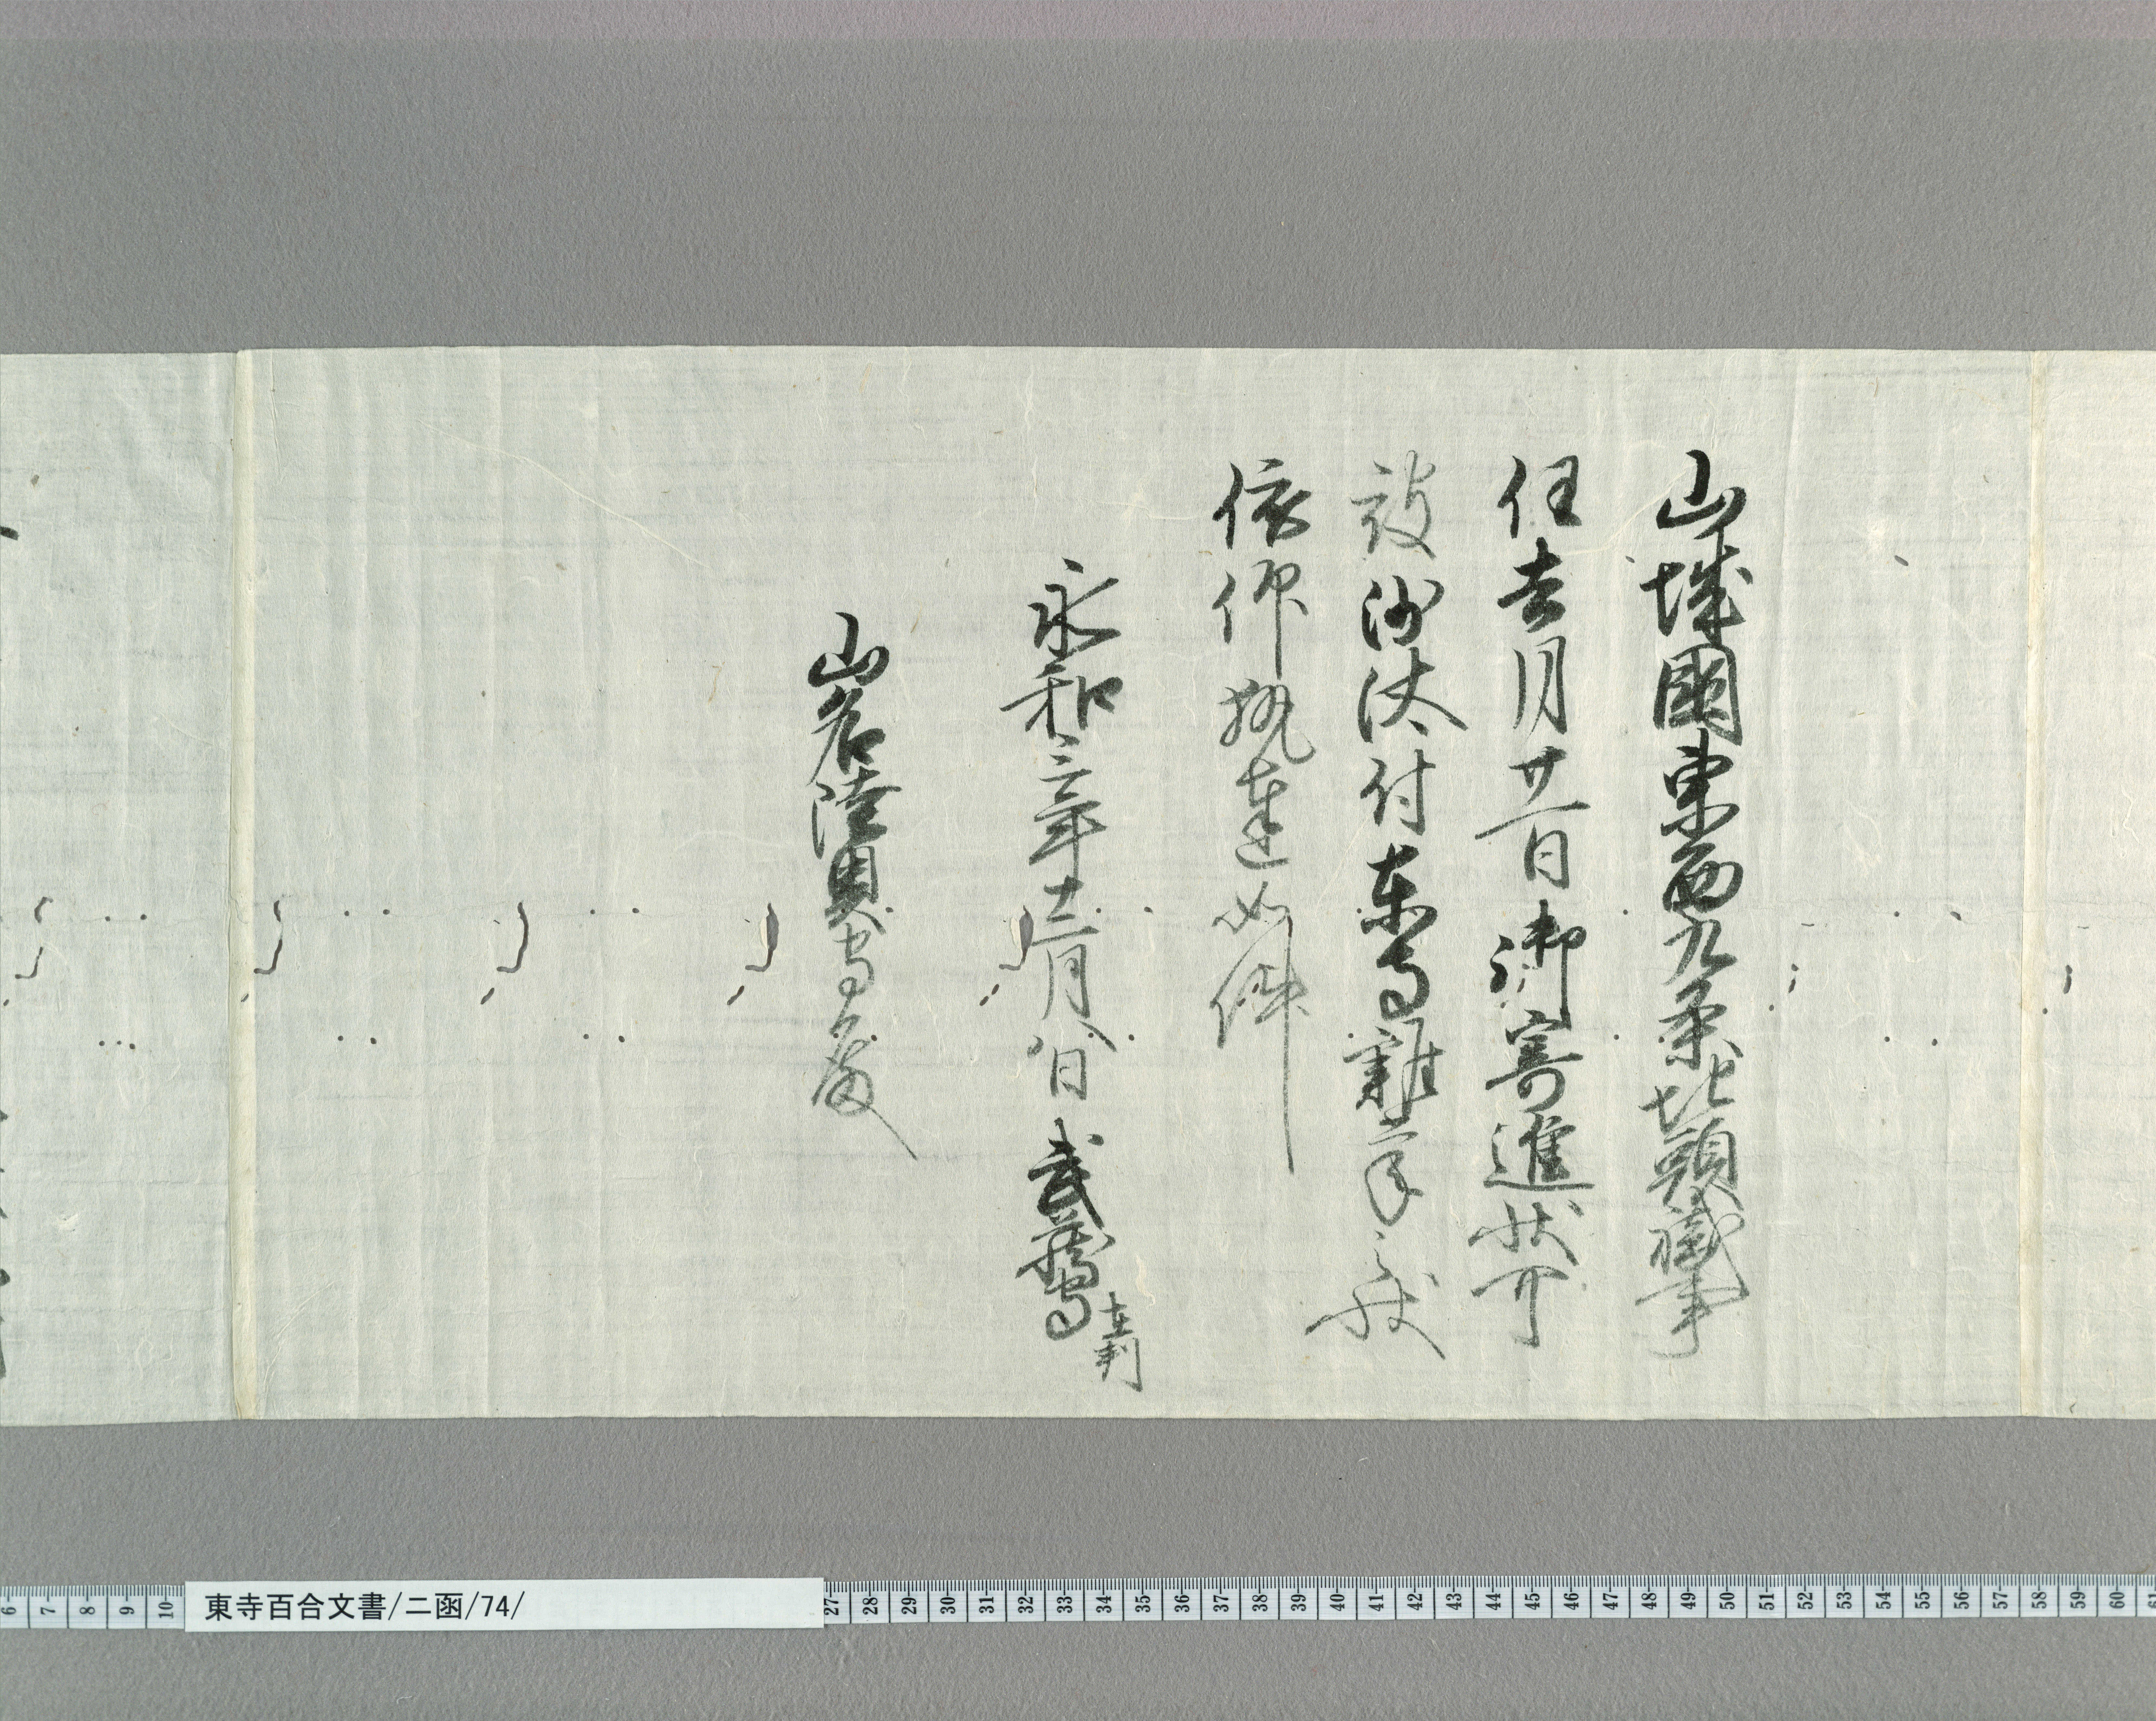 山城國東西九条地頭職事
任去月廿一日御寄進状可
被沙汰付東寺雑掌之状
依仰執達如件
永和三年十二月八日 武蔵守 在判
山名陸奥守殿
東寺百合文書/ニ函/74/